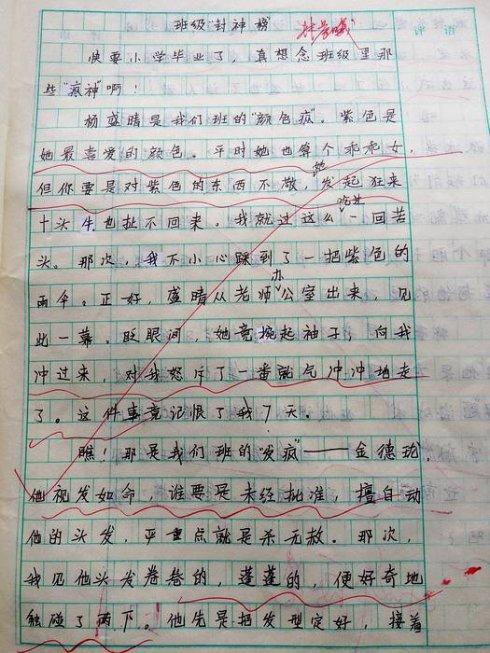 班级"封神榜"
评语
快要小学毕业了，真想念班级里那
些"疯神"啊！
杨盛晴是我们班的"颜色疯"。紫色是
她最喜爱的颜色。平时她也算个乖乖女，
但你要是对紫色的东西不敬，她发起狂来
十头牛也扯不回来。我就过这么吃过一回苦
头。那次，我不小心踩到了一把紫色的
雨伞。正好，盛晴从老师办公室出来，见
此一幕。眨眼间，她竟挽起袖子，向我
冲过来，对我怒斥了一番就气冲冲地走
了。这件事竟记恨了我7天。
瞧！那是我们班的"发疯"——金德珑，
他视发如命，谁要是未经批准，擅自动
他的头发，严重点就是杀无赦。那次，
我见他头发卷卷的，蓬蓬的，便好奇地
触碰了两下。他先是把发型定好，接着